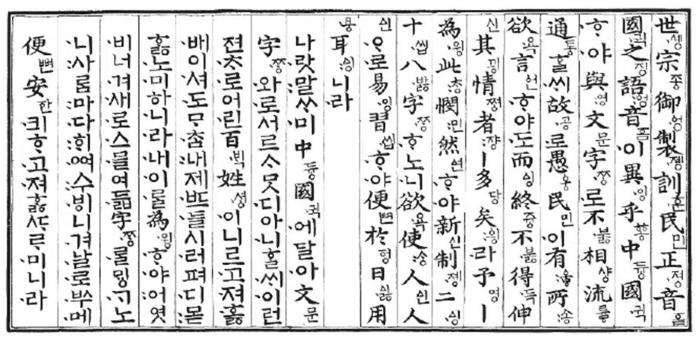 世솅宗종御엉製졩訓훈民민正졍音흠
國귁之징語엉音흠이異잉乎홍中듕國귁
ᄒᆞ야與영文문字ᄍᆞᆼ로不붏相샹流륳
通통ᄒᆞᆯᄊᆡ故공로愚웅民민이有울所송
欲욕言언ᄒᆞ야도而ᅀᅵᆼ終즁不붏得득伸신
其끵情쪙者쟝ㅣ多당矣읭라予영ㅣ
為윙此ᄎᆞᆼ憫민然ᅀᅧᆫᄒᆞ야新신制졩二ᅀᅵᆼ
十씹八밣字ᄍᆞᆼᄒᆞ노니欲욕使ᄉᆞᆼ人ᅀᅵᆫ人
ᄋᆞ로易잉習씹ᄒᆞ야便뼌於ᅙᅥᆼ日ᅀᅵᇙ用용
耳ᅀᅵᆼ니라
나랏말ᄊᆞ미中듕國귁에달아文문
字ᄍᆞᆼ와로서르ᄉᆞᄆᆞᆺ디아니ᄒᆞᆯᄊᆡ이런
젼ᄎᆞ로어린百ᄇᆡᆨ姓셩이니르고져ᄒᆞᇙ
배이셔도ᄆᆞᄎᆞᆷ내제ᄠᅳ들시러펴디몯
ᄒᆞᇙ노미하니라내이ᄅᆞᆯ為윙ᄒᆞ야어엿
비너겨새로스믈여듧字ᄍᆞᆼᄅᆞᆯᄆᆡᇰᄀᆞ노
니사ᄅᆞᆷ마다ᄒᆡᅇᅧ수ᄫᅵ니겨날로ᄡᅮ메
便뼌安한킈ᄒᆞ고져ᄒᆞᇙᄯᆞᄅᆞ미니라